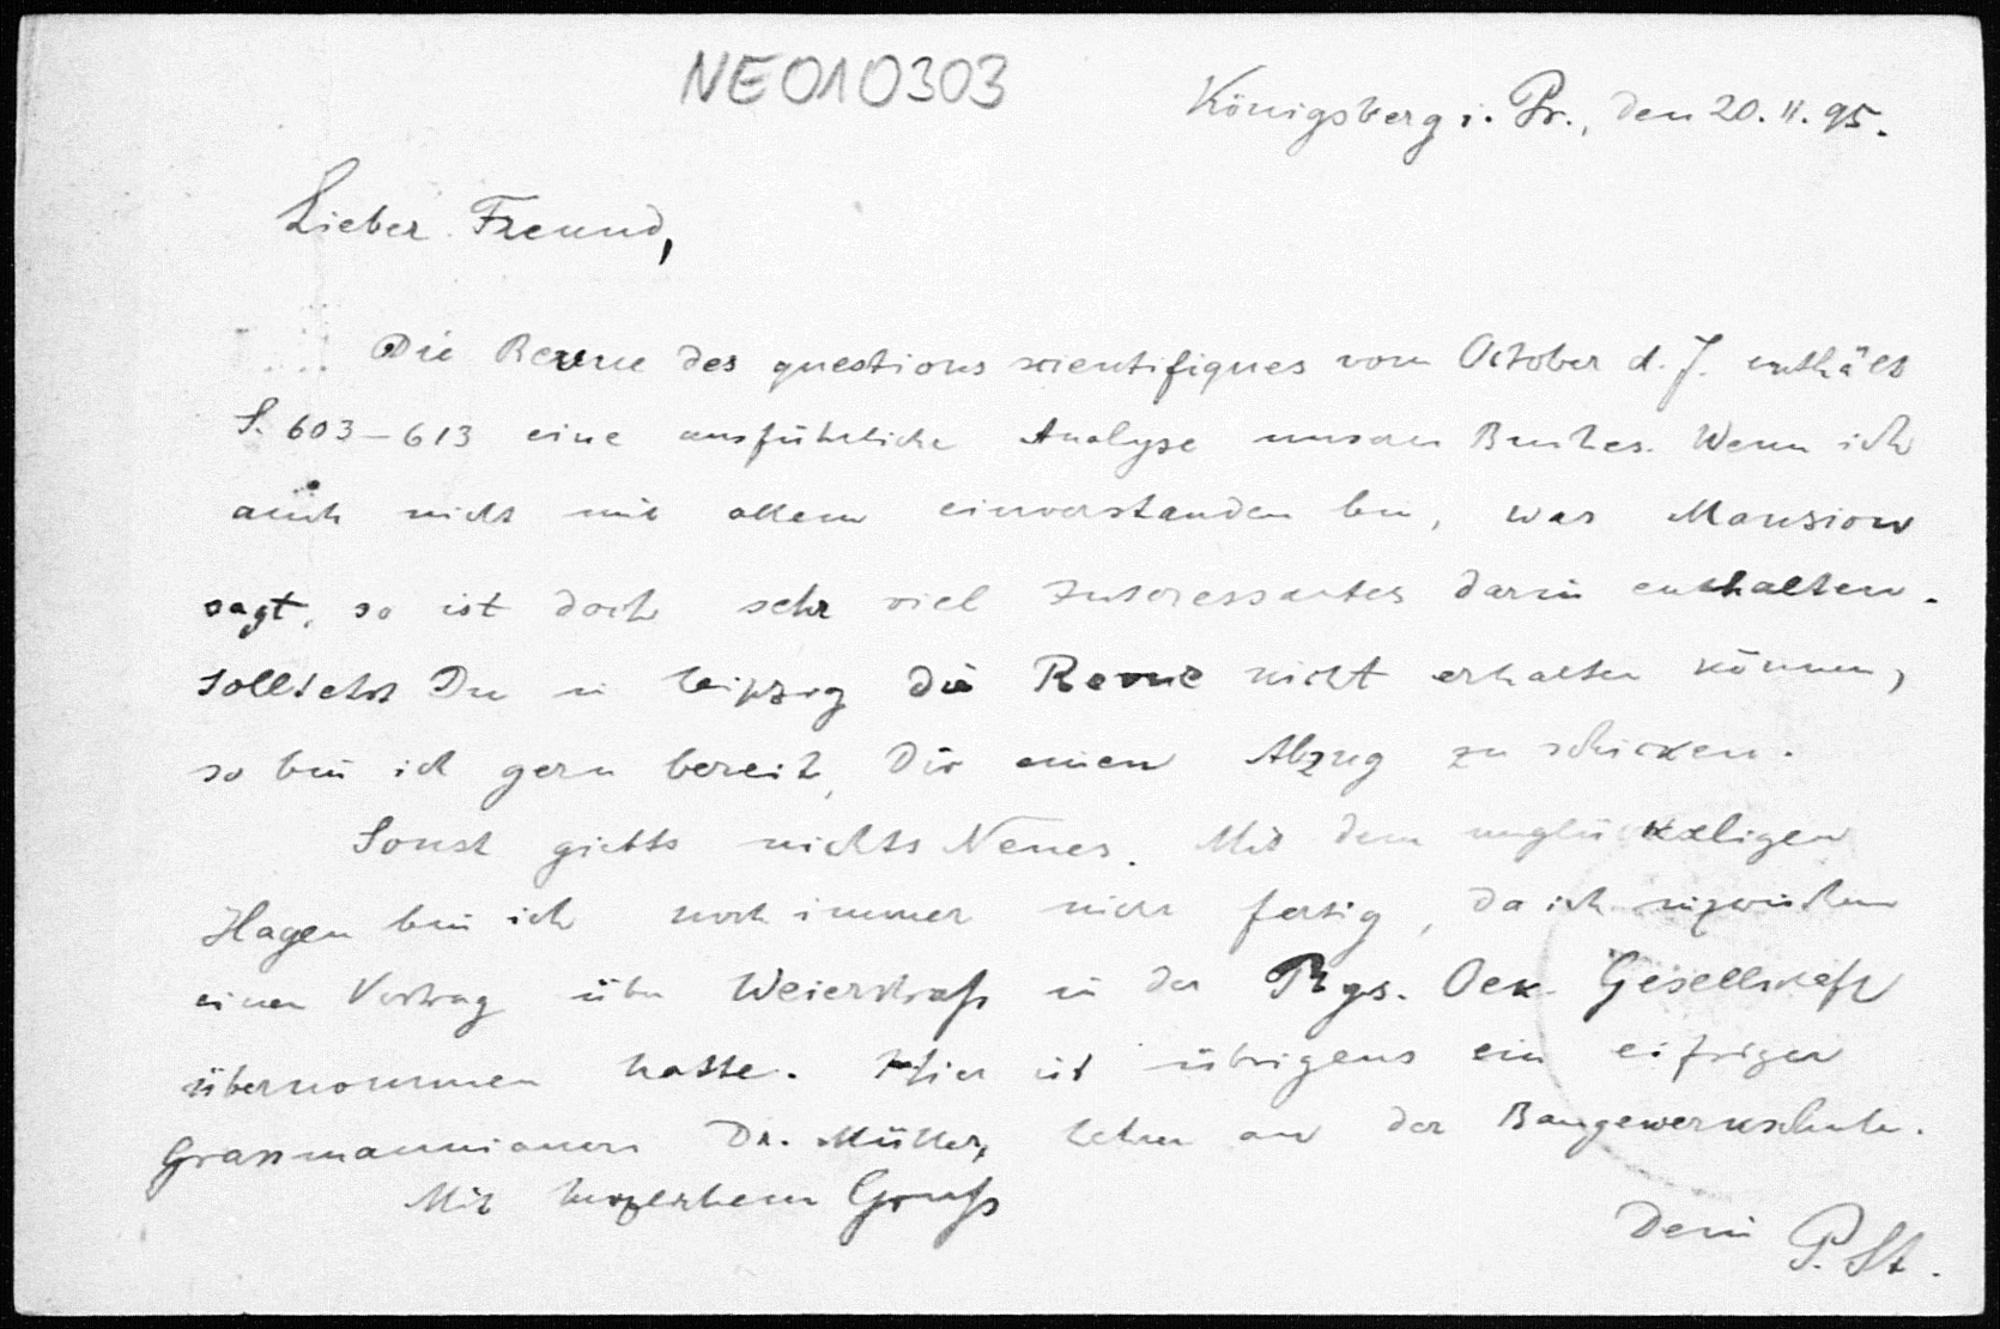 NE010303
Königsberg i. Pr., den 20. 11. 95.
Lieber Freund,
Die Revue des questions scientifiques vom October d. J. enthält
S. 603–613 eine ausführliche Analyse unseres Buches. Wenn ich
auch nicht mit allem einverstanden bin, was Mansion
sagt, so ist doch sehr viel Interessantes darin enthalten.
Solltest Du in Leipzig die Revue nicht erhalten können,
so bin ich gern bereit, Dir einen Abzug zu schicken.
Sonst giebts nichts Neues. Mit dem unglückseligen
Hagen bin ich noch immer nicht fertig, da ich inzwischen
einen Vortrag über Weierstraß in der Phys. Oek. Gesellschaft
übernommen hatte. Hier ist übrigens ein eifriger
Grassmannianer Dr. Müller, Lehrer an der Baugewerkschule.
Mit herzlichem Gruß
Dein P. St.